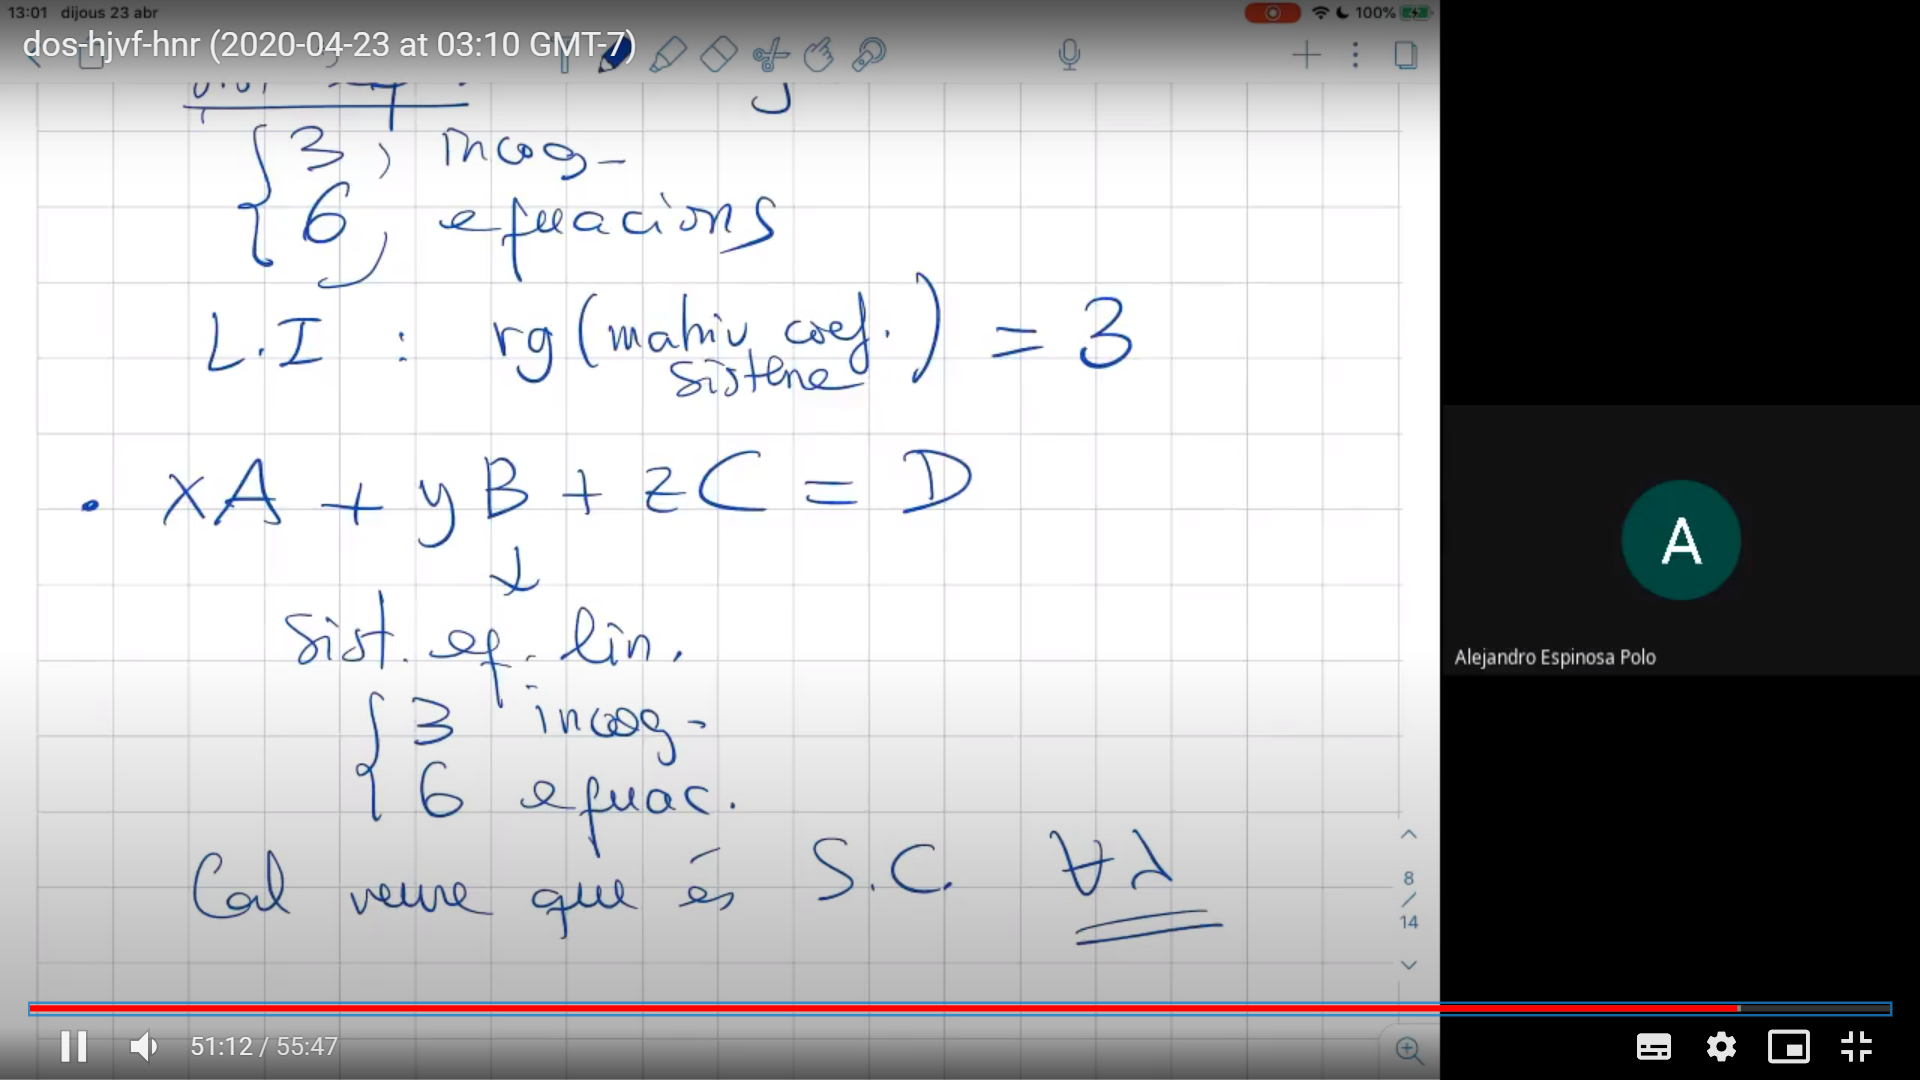 13:01 dijous 23 abr
100%
dos-hjvf-hnr (2020-04-23 at 03:10 GMT-7)
3, incog-
6, equacions
L.I : rg (matriu coef. sistema) = 3
• xA + yB + zC = D
↓
Sist. eq. lin.
{ 3 incog-
6 equac.
Cal veure que és S.C. ∀λ
8
/
14
A
Alejandro Espinosa Polo
51:12 / 55:47